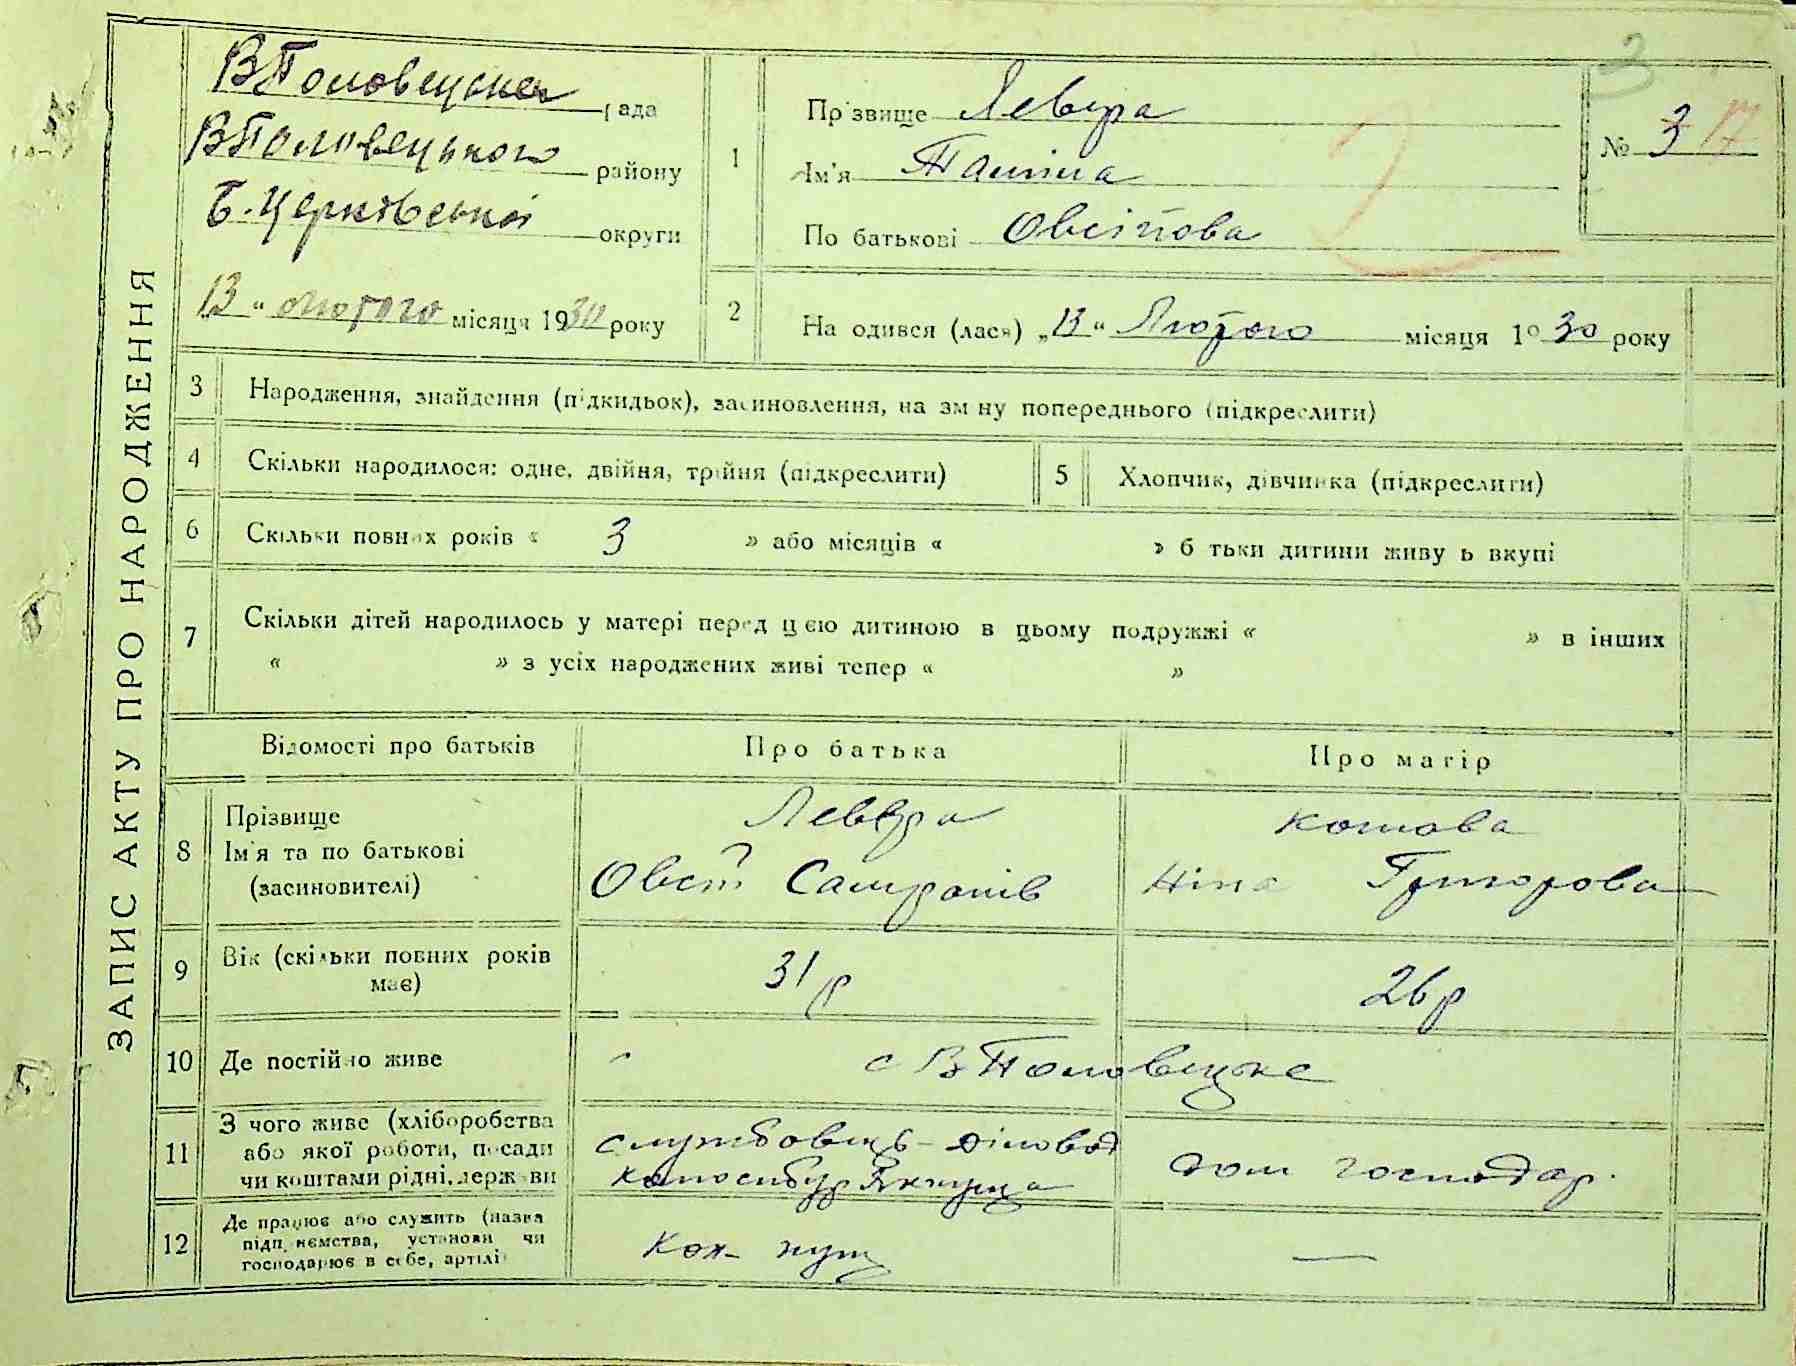 ЗАПИС АКТУ ПРО НАРОДЖЕННЯ
3
В Половецька рада
В Половецького району
Б. Церковської округи
"13" лютого місяця 1930 року
1
Прізвище Левера
Ім'я Галина
По батькові Овсіїова
№ 3 17
2
2
На одився (лася) „13" Лютого місяця 19 30 року
3
Народження, знайдення (підкидьок), засиновлення, на зміну попереднього (підкреслити)
4
Скільки народилося: одне, двійня, трійня (підкреслити)
5
Хлопчик, дівчинка (підкреслити)
6
Скільки повних років « 3 » або місяців « » батьки дитини живуть вкупі
7
Скільки дітей народилось у матері перед цією дитиною в цьому подружжі « » в інших
« » з усіх народжених живі тепер « »
Відомості про батьків
Про батька
Про матір
8
Прізвище
Ім'я та по батькові
(засиновителі)
Левера
Овсій
Котова
Ніна Григорова
9
Вік (скільки повних років
має)
31 р
26 р
10
Де постійно живе
с В Половецьке
11
З чого живе (хліборобства
або якої роботи, посади
чи коштами рідні, держави
службовець - діловод
дом господар.
12
Де працює або служить (назва
підприємства, установи чи
господарює в себе, артілі)
—